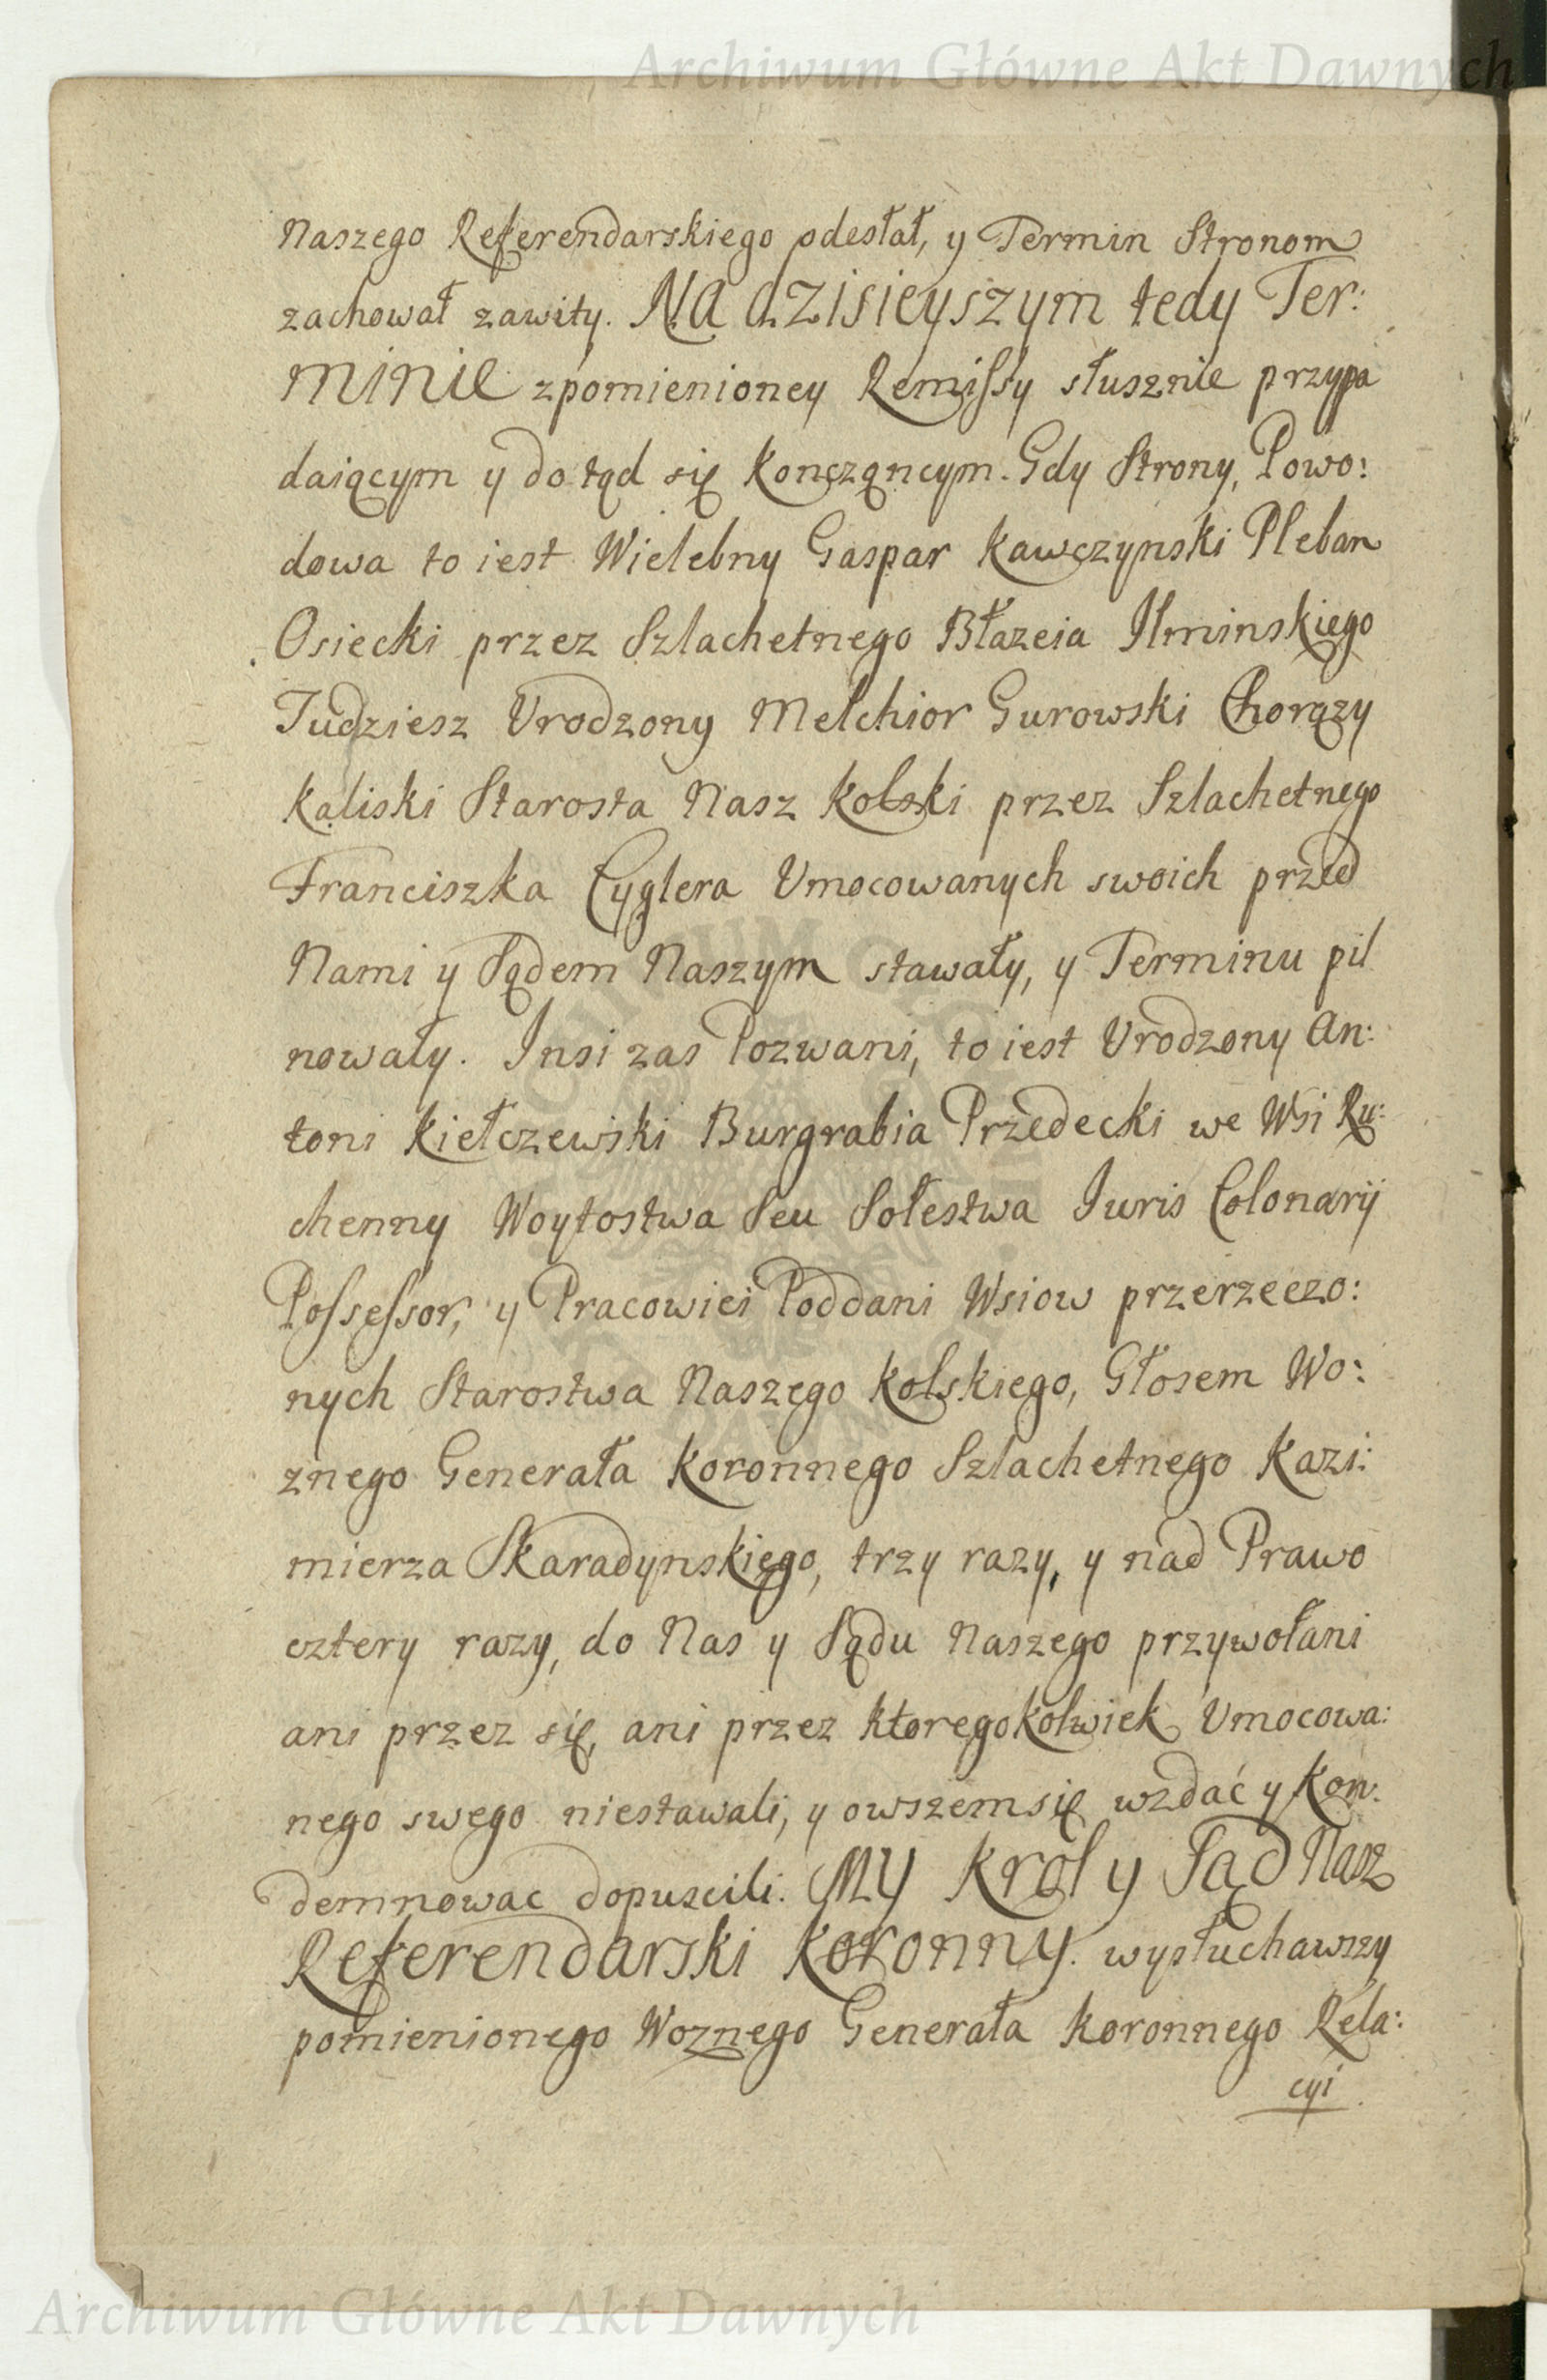 Archiwum Główne Akt Dawnych
Naszego Referendarskiego odesłał, y Termin Stronom
zachował zawity. Na dzisieyszym tedy Ter:
minie zpomienioney Remissy słusznie przypa
daiącym y do tąd się kończąncym. Gdy Strony, Powo:
dowa to iest Wielebny Gaspar Kawczynski Pleban
Osiecki przez Szlachetnego Błazeia Ilminskiego
Tudziesz Vrodzony Melchior Gurowski Chorązy
Kaliski Starosta Nasz Kolski przez Szlachetnego
Franciszka Cyglera Vmocowanych swoich przed
Nami y Sądem Naszym stawały, y Terminu pil
nowały. Insi zas Pozwani, to iest Vrodzony An:
toni Kiełczewski Burgrabia Przedecki we Wsi Ru:
chenny Woytostwa Seu Sołestwa Iuris Colonarij
Possessor, y Pracowici Poddani Wsiow przerzeczo:
nych Starostwa Naszego Kolskiego, Głosem Wo:
znego Generała Koronnego Szlachetnego Kazi:
mierza Skaradynskiego, trzy razy, y nad Prawo
cztery razy, do Nas y Sądu Naszego przywołani
ani przez się, ani przez ktoregokolwiek Vmocowa:
nego swego niestawali, y owszem się wzdać y Kon:
demnowac dopuscili. My Krol y Sąd Nasz
Referendarski Koronny. wysłuchawszy
pomienionego Woznego Generała Koronnego Rela:
cyi
Archiwum Główne Akt Dawnych